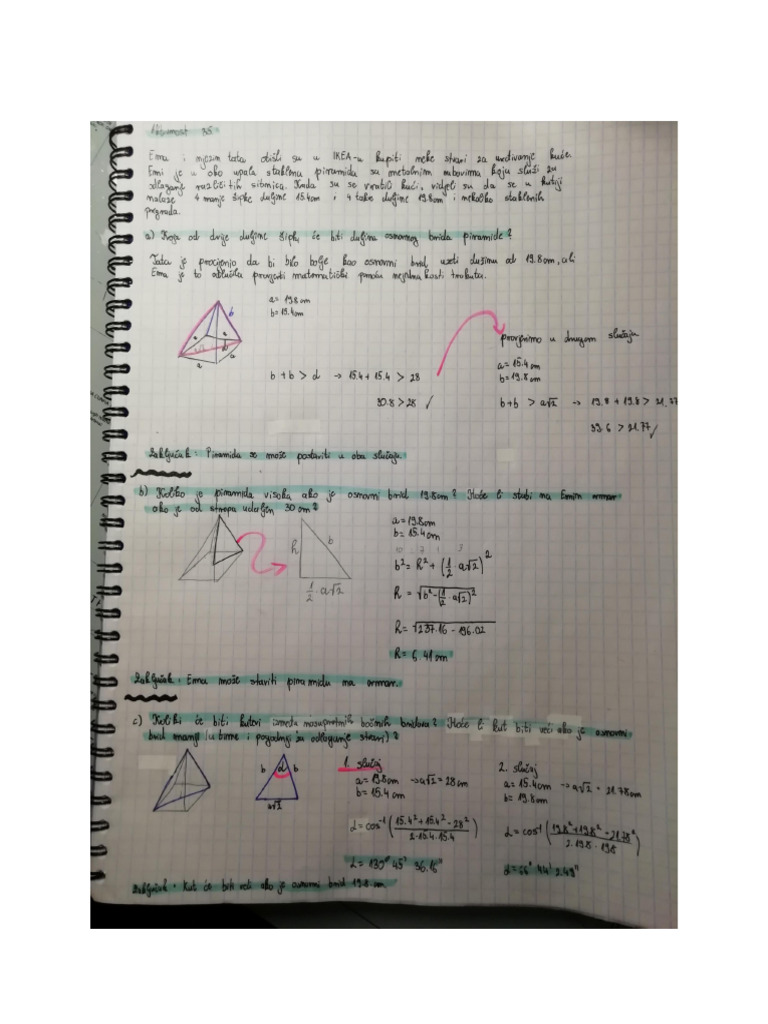 Ema i njezin tata otišli su u IKEA-u kupiti neke stvari za uređivanje kuće.
Emi je u oko upala staklena piramida sa metalnim rubovima koju služi za
odlaganje različitih sitnica. Kada su se vratili kući, vidjeli su da se u kutiji
nalaze 4 manje šipke duljine 15.4cm i 4 duljine 19.8cm i nekoliko staklenih
pregrada.
a) Koja od dvije duljine šipki će biti duljina osnovnog brida piramide?
Tata je procijenio da bi bilo bolje kao osnovni brid uzeti dužinu od 19.8cm, ali
Ema je to odlučila provjeriti matematički pomoću nejednakosti trokuta.
a = 19.8cm
b = 15.4cm
b
a a
a a
b + b > d → 15.4 + 15.4 > 28
30.8 > 28 ✓
provjerimo u drugom slučaju
a = 15.4cm
b = 19.8cm
b+b > a√2 → 19.8 + 19.8 > 21.77
39.6 > 21.77 ✓
Zaključak: Piramida se može postaviti u oba slučaja.
b) Koliko je piramida visoka ako je osnovni brid 19.8cm? Hoće li stati na Emin ormar
ako je od stropa udaljen 30cm?
h b
1/2 · a√2
a = 19.8cm
b = 15.4cm
b² = h² + (1/2 a√2)²
h = √(b² - (1/2 · a√2)²)
h = √(237.16 - 196.02)
h = 6.41cm
Zaključak: Ema može staviti piramidu na ormar.
c) Koliki će biti kutovi između nasuprotnih bočnih bridova? Hoće li kut biti veći ako je osnovni
brid manji (u tome i pogodniji za odlaganje stvari)?
b α b
a√2
1. slučaj
a = 19.8cm → a√2 = 28cm
b = 15.4cm
α = cos⁻¹ (15.4² + 15.4² - 28² / 2·15.4·15.4)
α = 130° 45' 36.16"
2. slučaj
a = 15.4cm → a√2 = 21.78cm
b = 19.8cm
α = cos⁻¹ (19.8² + 19.8² - 21.78² / 2·19.8·19.8)
α = 66° 44' 2.49"
Zaključak: Kut će biti veći ako je osnovni brid 19.8 cm.